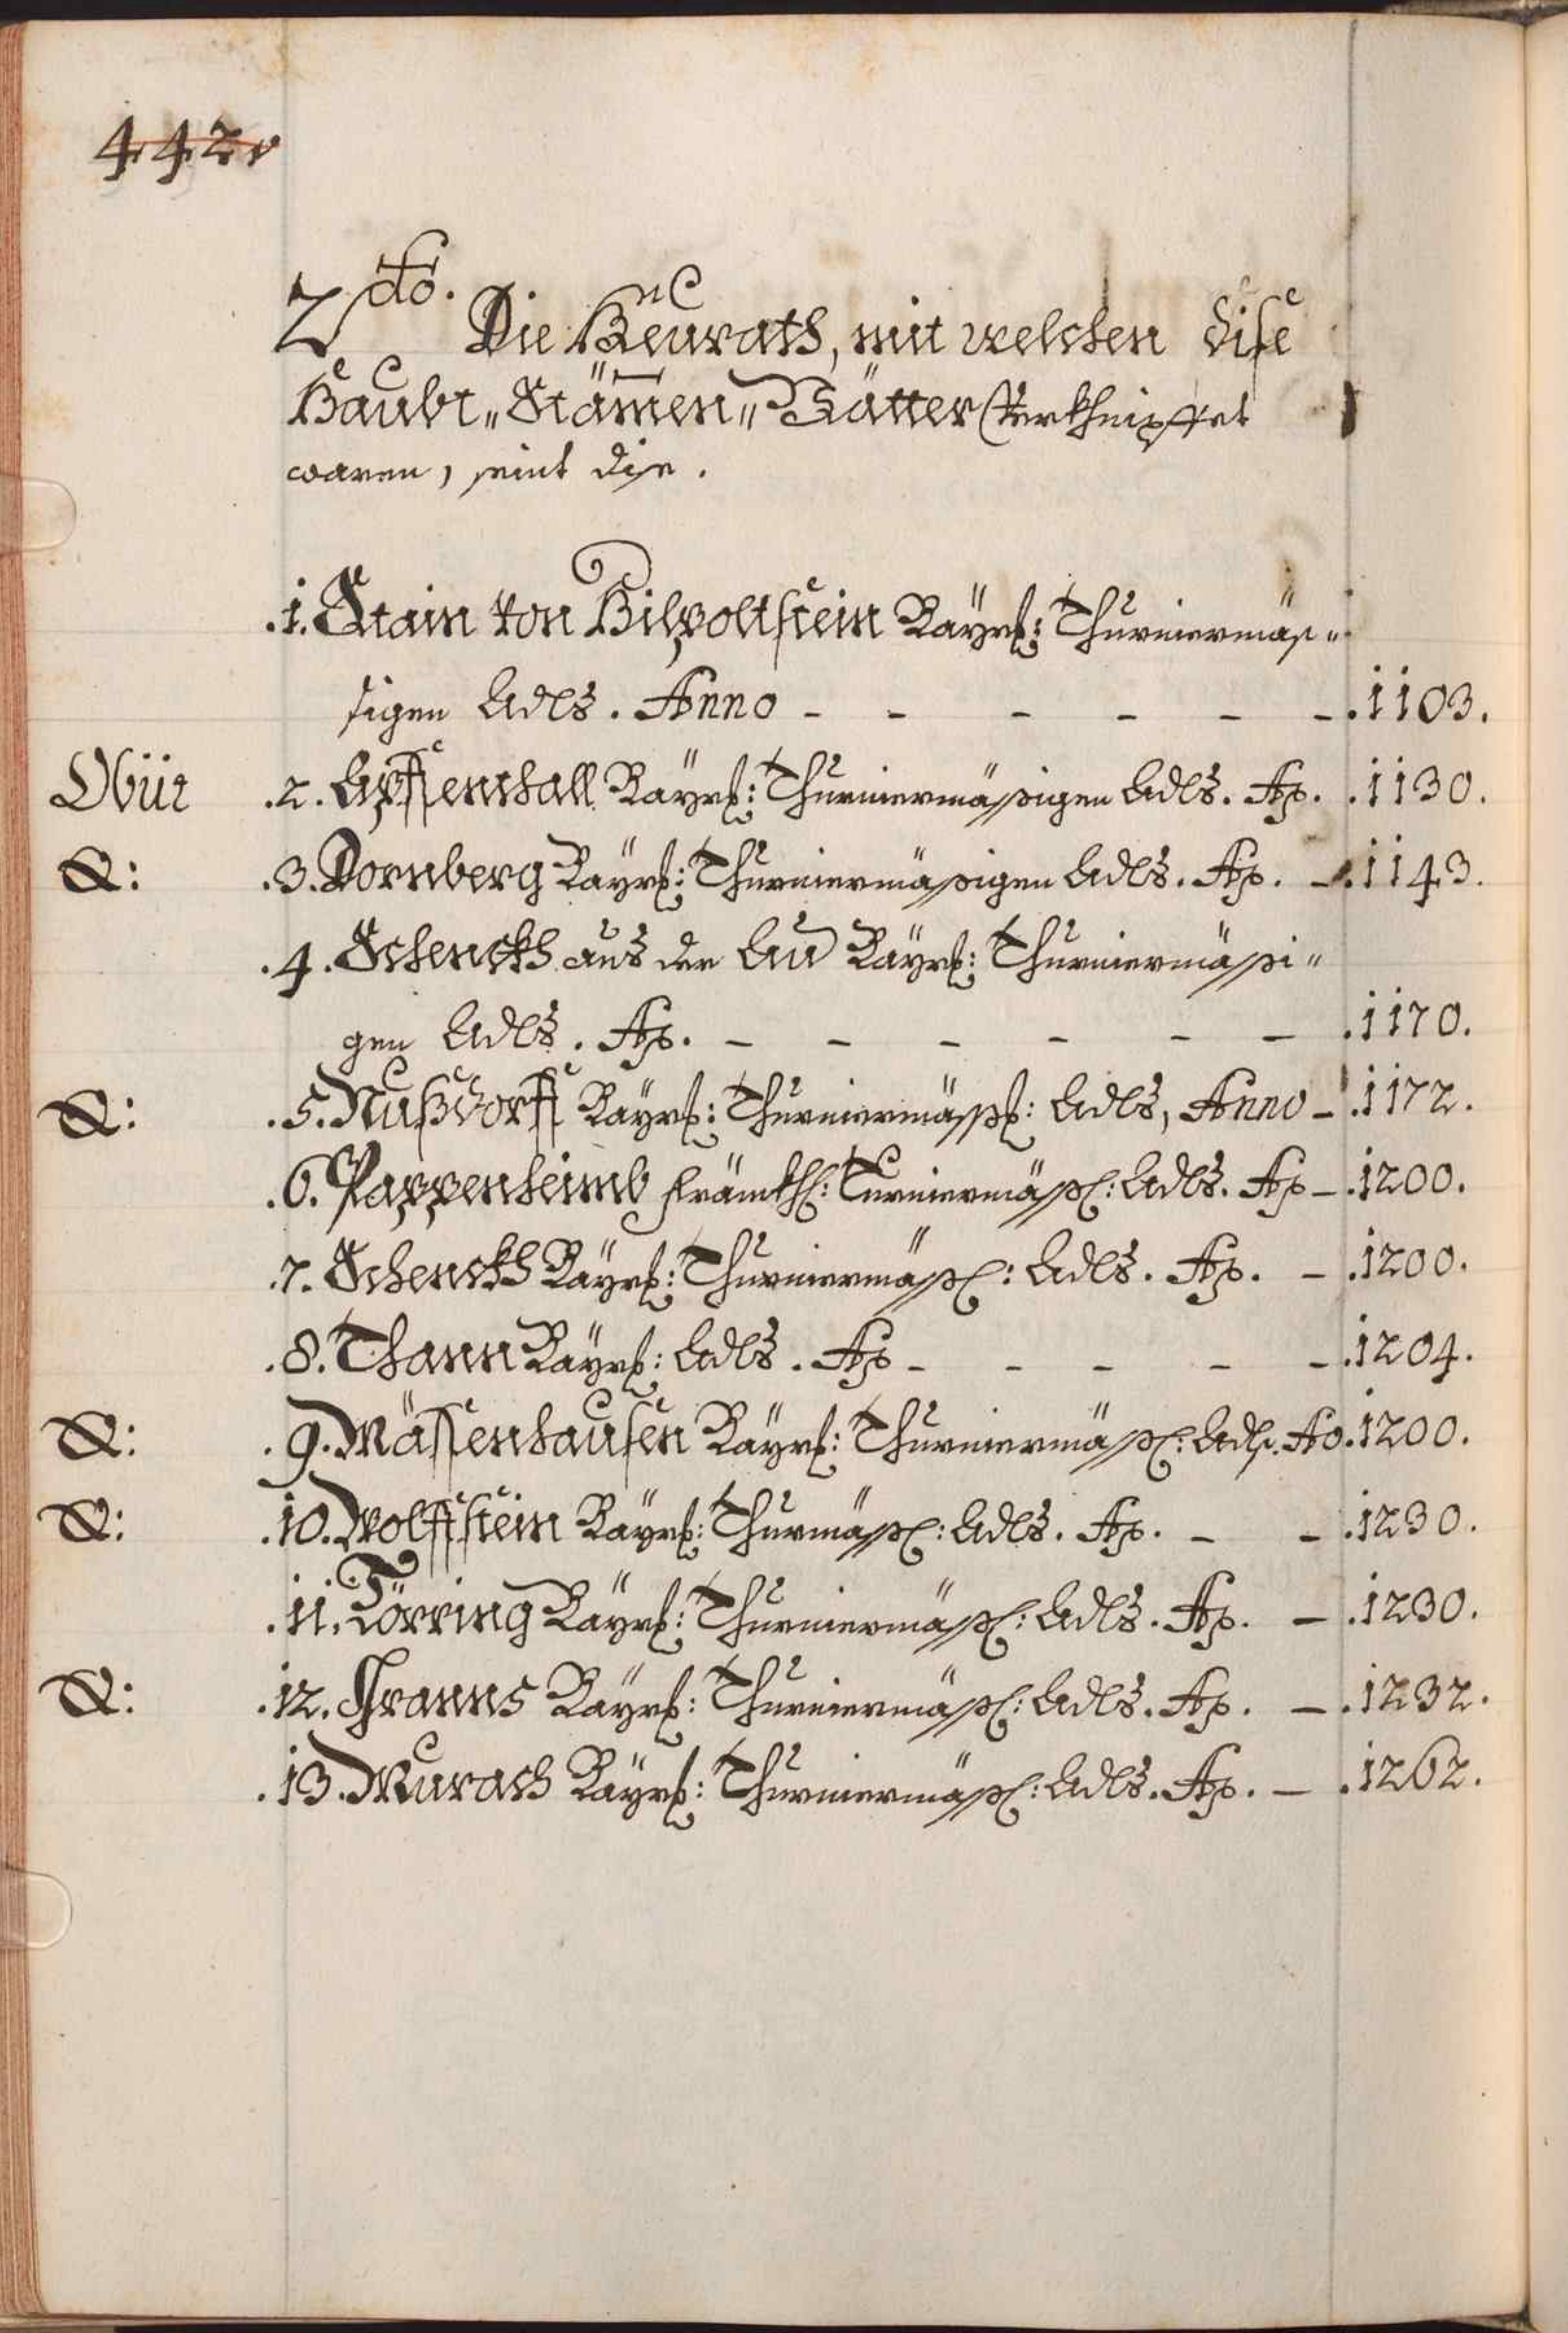 442v
2do. Die Heurath, mit welchen dise
Haubt„ Stämen„ Vätter Verkhnipffet
waren, seint dise.
.1. Stain von Hilpoltstein Bayrs: Thurniermäs„
sigen Adls. Anno - - - - - - .1103.
Obüt .2. Apffenthall Bayrs: Thurniermässigen Adls. Ao. .1130.
O: .3. Dornberg Bayrs: Thurniermässigen Adls. Ao. - .1143.
.4. Schenckh aus der Au Bayrs: Thurniermässi„
gen Adls. Ao. - - - - - - .1170.
O: .5. Nußdorff Bayrs: Thurniermäss: Adls, Anno - .1172.
.6. Pappenheimb Fränkhl: Turniermässl: Adls. Ao - .1200.
.7. Schenckh Bayrs: Thurniermässl: Adls. Ao. - .1200.
.8. Thann Bayrs: Adls. Ao - - - - - .1204.
O: .9. Mässenhausen Bayrs: Thurniermässl: Adls. Ao .1200.
O: .10. Wolffstein Bayrs: Thurmässl: Adls. Ao. - - .1230.
.11. Törring Bayrs: Thurniermässl: Adls. Ao. - .1230.
O: .12. Fraunb Bayrs: Thurniermässl: Adls. Ao. - .1232.
.13. Murach Bayrs: Thurniermässl: Adls. Ao. - .1262.